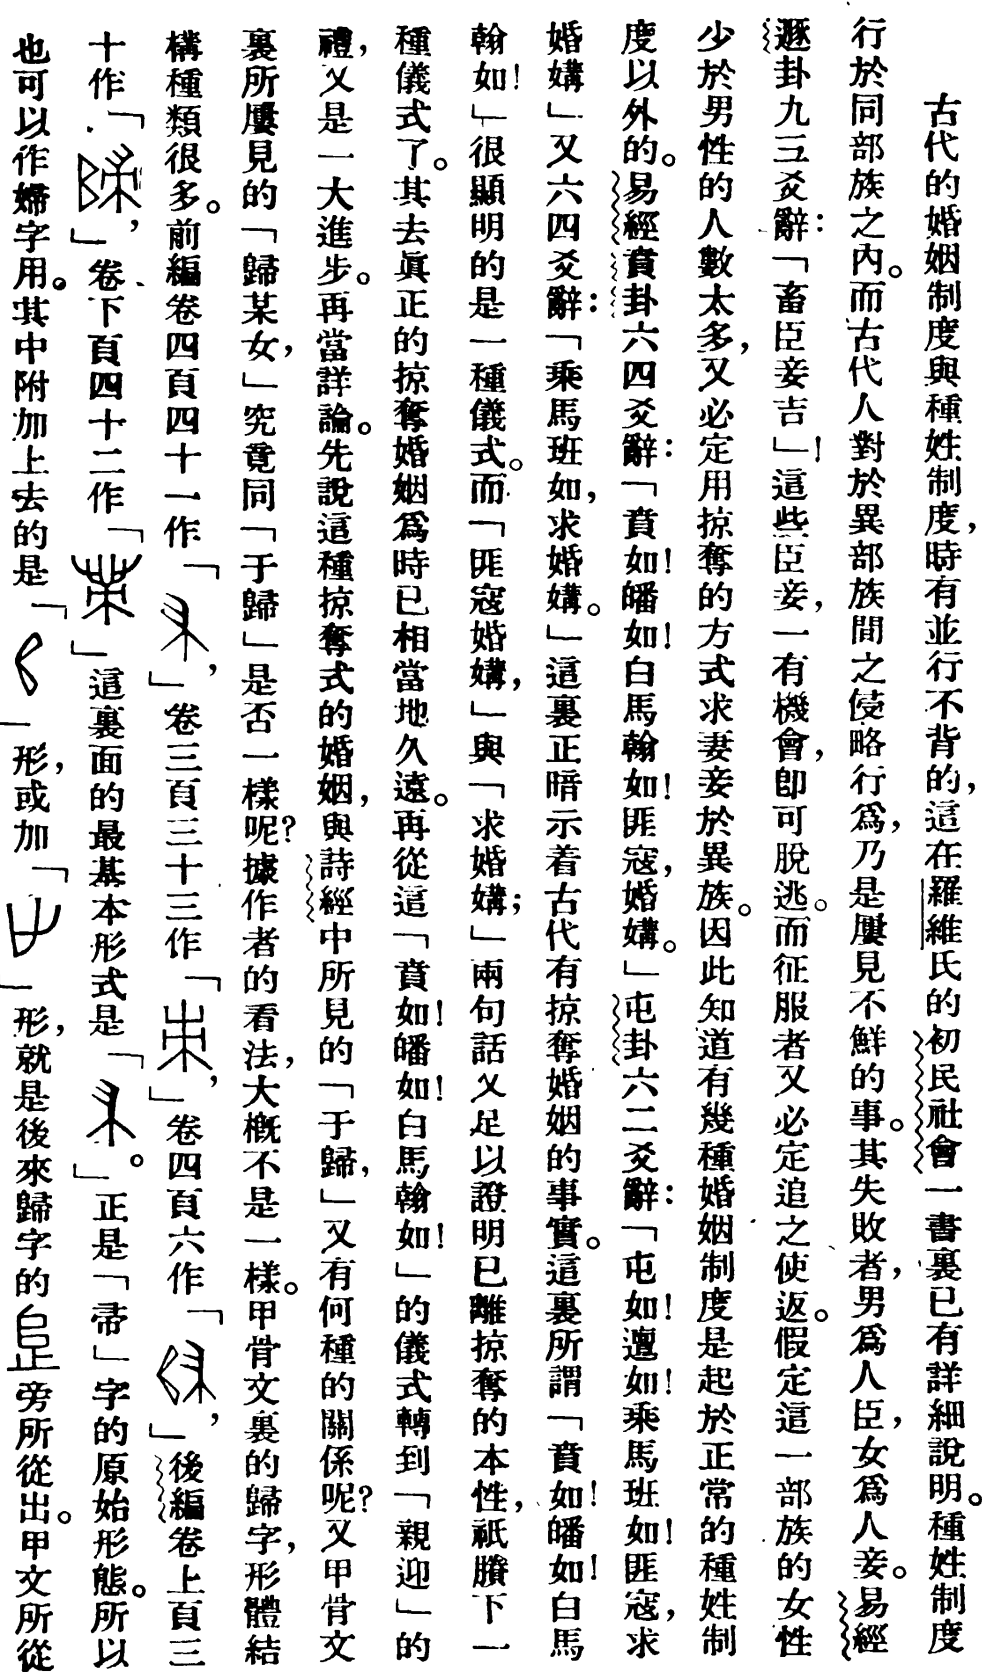 古代的婚姻制度與種姓制度，時有並行不背的，這在羅維氏的初民社會一書裏已有詳細說明。種姓制度
行於同部族之內。而古代人對於異部族間之侵略行爲，乃是屢見不鮮的事。其失敗者，男爲人臣，女爲人妾。易經
遯卦九三爻辭：「畜臣妾吉」！這些臣妾，一有機會，卽可脫逃。而征服者又必定追之使返。假定這一部族的女性
少於男性的人數太多，又必定用掠奪的方式求妻妾於異族。因此知道有幾種婚姻制度是起於正常的種姓制
度以外的。易經賁卦六四爻辭：「賁如！皤如！白馬翰如！匪寇，婚媾。」屯卦六二爻辭：「屯如！邅如！乘馬班如！匪寇，求
婚媾」又六四爻辭：「乘馬班如，求婚媾。」這裏正暗示着古代有掠奪婚姻的事實。這裏所謂「賁如！皤如！白馬
翰如！」很顯明的是一種儀式。而「匪寇婚媾，」與「求婚媾；」兩句話又足以證明已離掠奪的本性，祇賸下一
種儀式了。其去眞正的掠奪婚姻爲時已相當地久遠。再從這「賁如！皤如！白馬翰如！」的儀式轉到「親迎」的
禮，又是一大進步。再當詳論。先說這種掠奪式的婚姻，與詩經中所見的「于歸，」又有何種的關係呢？又甲骨文
裏所屢見的「歸某女，」究竟同「于歸」是否一樣呢？據作者的看法，大概不是一樣。甲骨文裏的歸字，形體結
構種類很多。前編卷四頁四十一作「　，」卷三頁三十三作「　，」卷四頁六作「　，」後編卷上頁三
十作「　，」卷下頁四十二作「　」這裏面的最基本形式是「　」。正是「帚」字的原始形態。所以
也可以作婦字用。其中附加上去的是「　」形，或加「　」形，就是後來歸字的𠂤止旁所從出。甲文所從